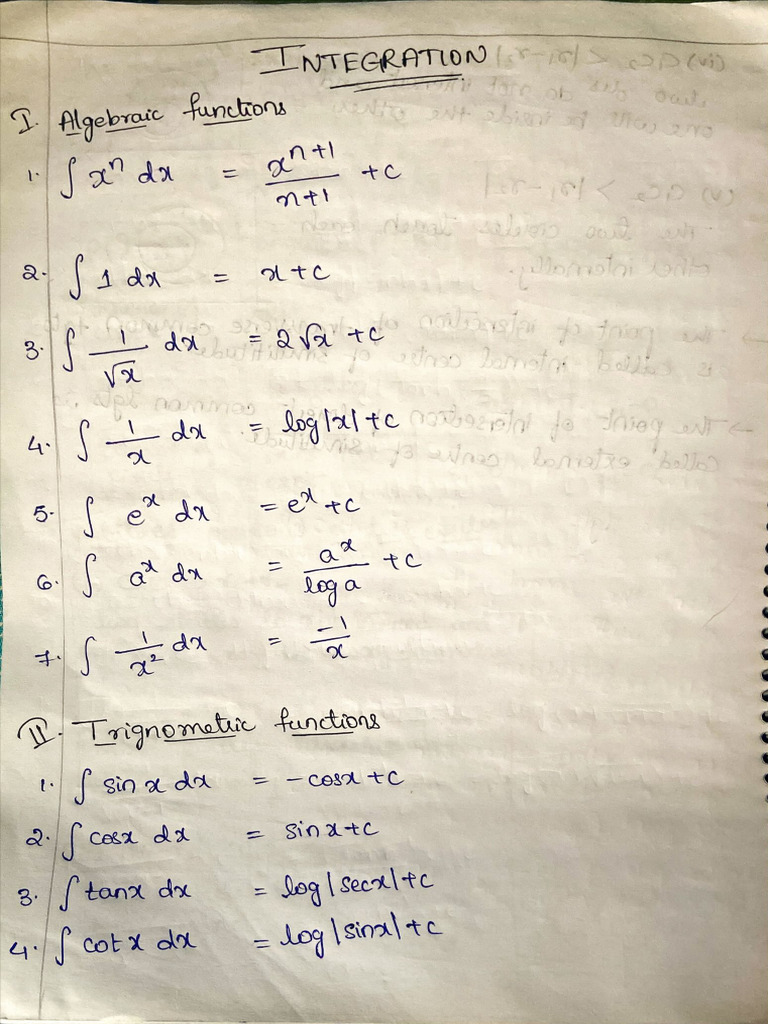 INTEGRATION
I. Algebraic functions
1. ∫ xⁿ dx = xⁿ⁺¹/n+1 + c
2. ∫ 1 dx = x + c
3. ∫ 1/√x dx = 2√x + c
4. ∫ 1/x dx = log|x| + c
5. ∫ eˣ dx = eˣ + c
6. ∫ aˣ dx = aˣ/log a + c
7. ∫ 1/x² dx = -1/x
II. Trignometric functions
1. ∫ sin x dx = -cosx + c
2. ∫ cosx dx = sinx + c
3. ∫ tanx dx = log|secx| + c
4. ∫ cot x dx = log|sinx| + c